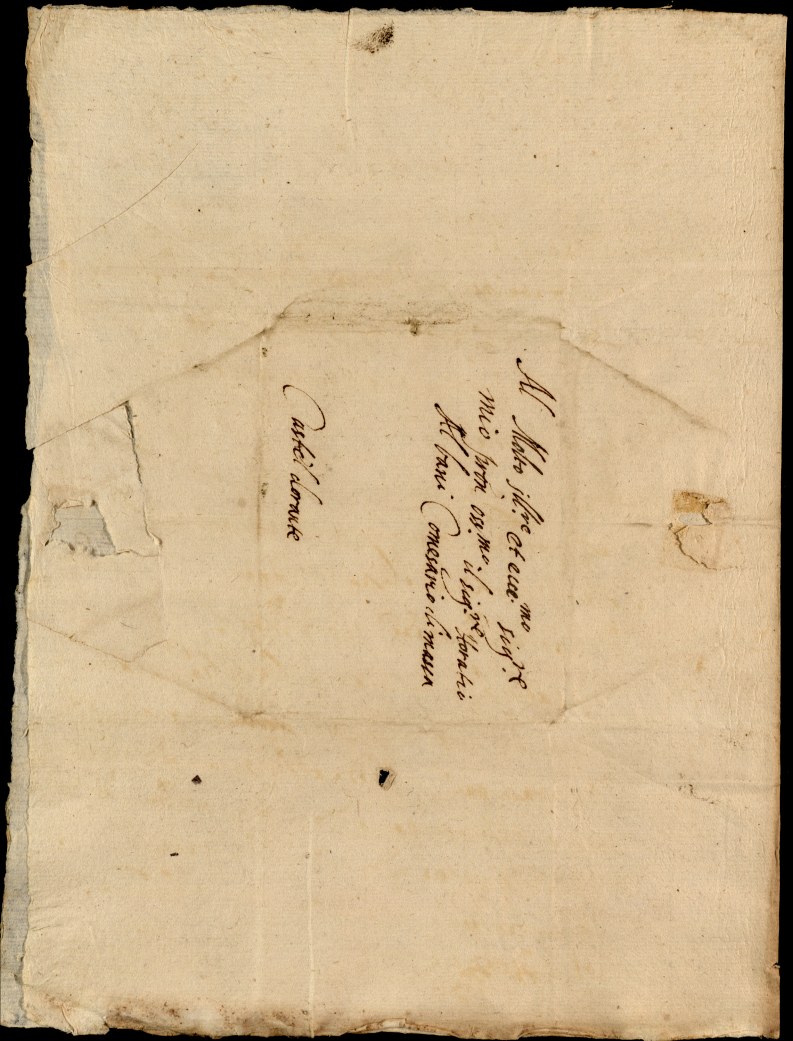 Al Molto Ill.re et ecc.mo sig.re
mio pron oss.mo il sig.re Horatio
Albani Comesario di massa
Castel durante